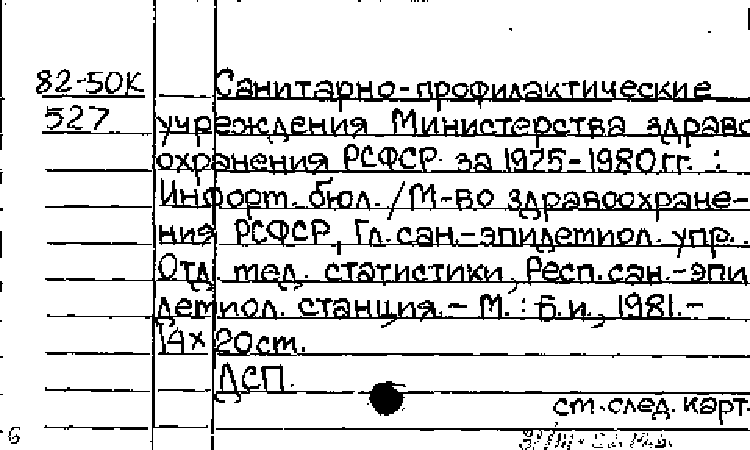 82-50К Санитарно-профилактические
527 учреждения Министерства здраво
охранения РСФСР за 1975-1980 гг. :
Информ. бюл. / М-во здравоохране-
ния РСФСР, Гл. сан.-эпидемиол. упр.
Отд. мед. статистики, Респ. сан.-эпи
демиол. станция. - М. : Б.и., 1981. -
14 × 20 см.
ДСП.
см. след. карт.
6